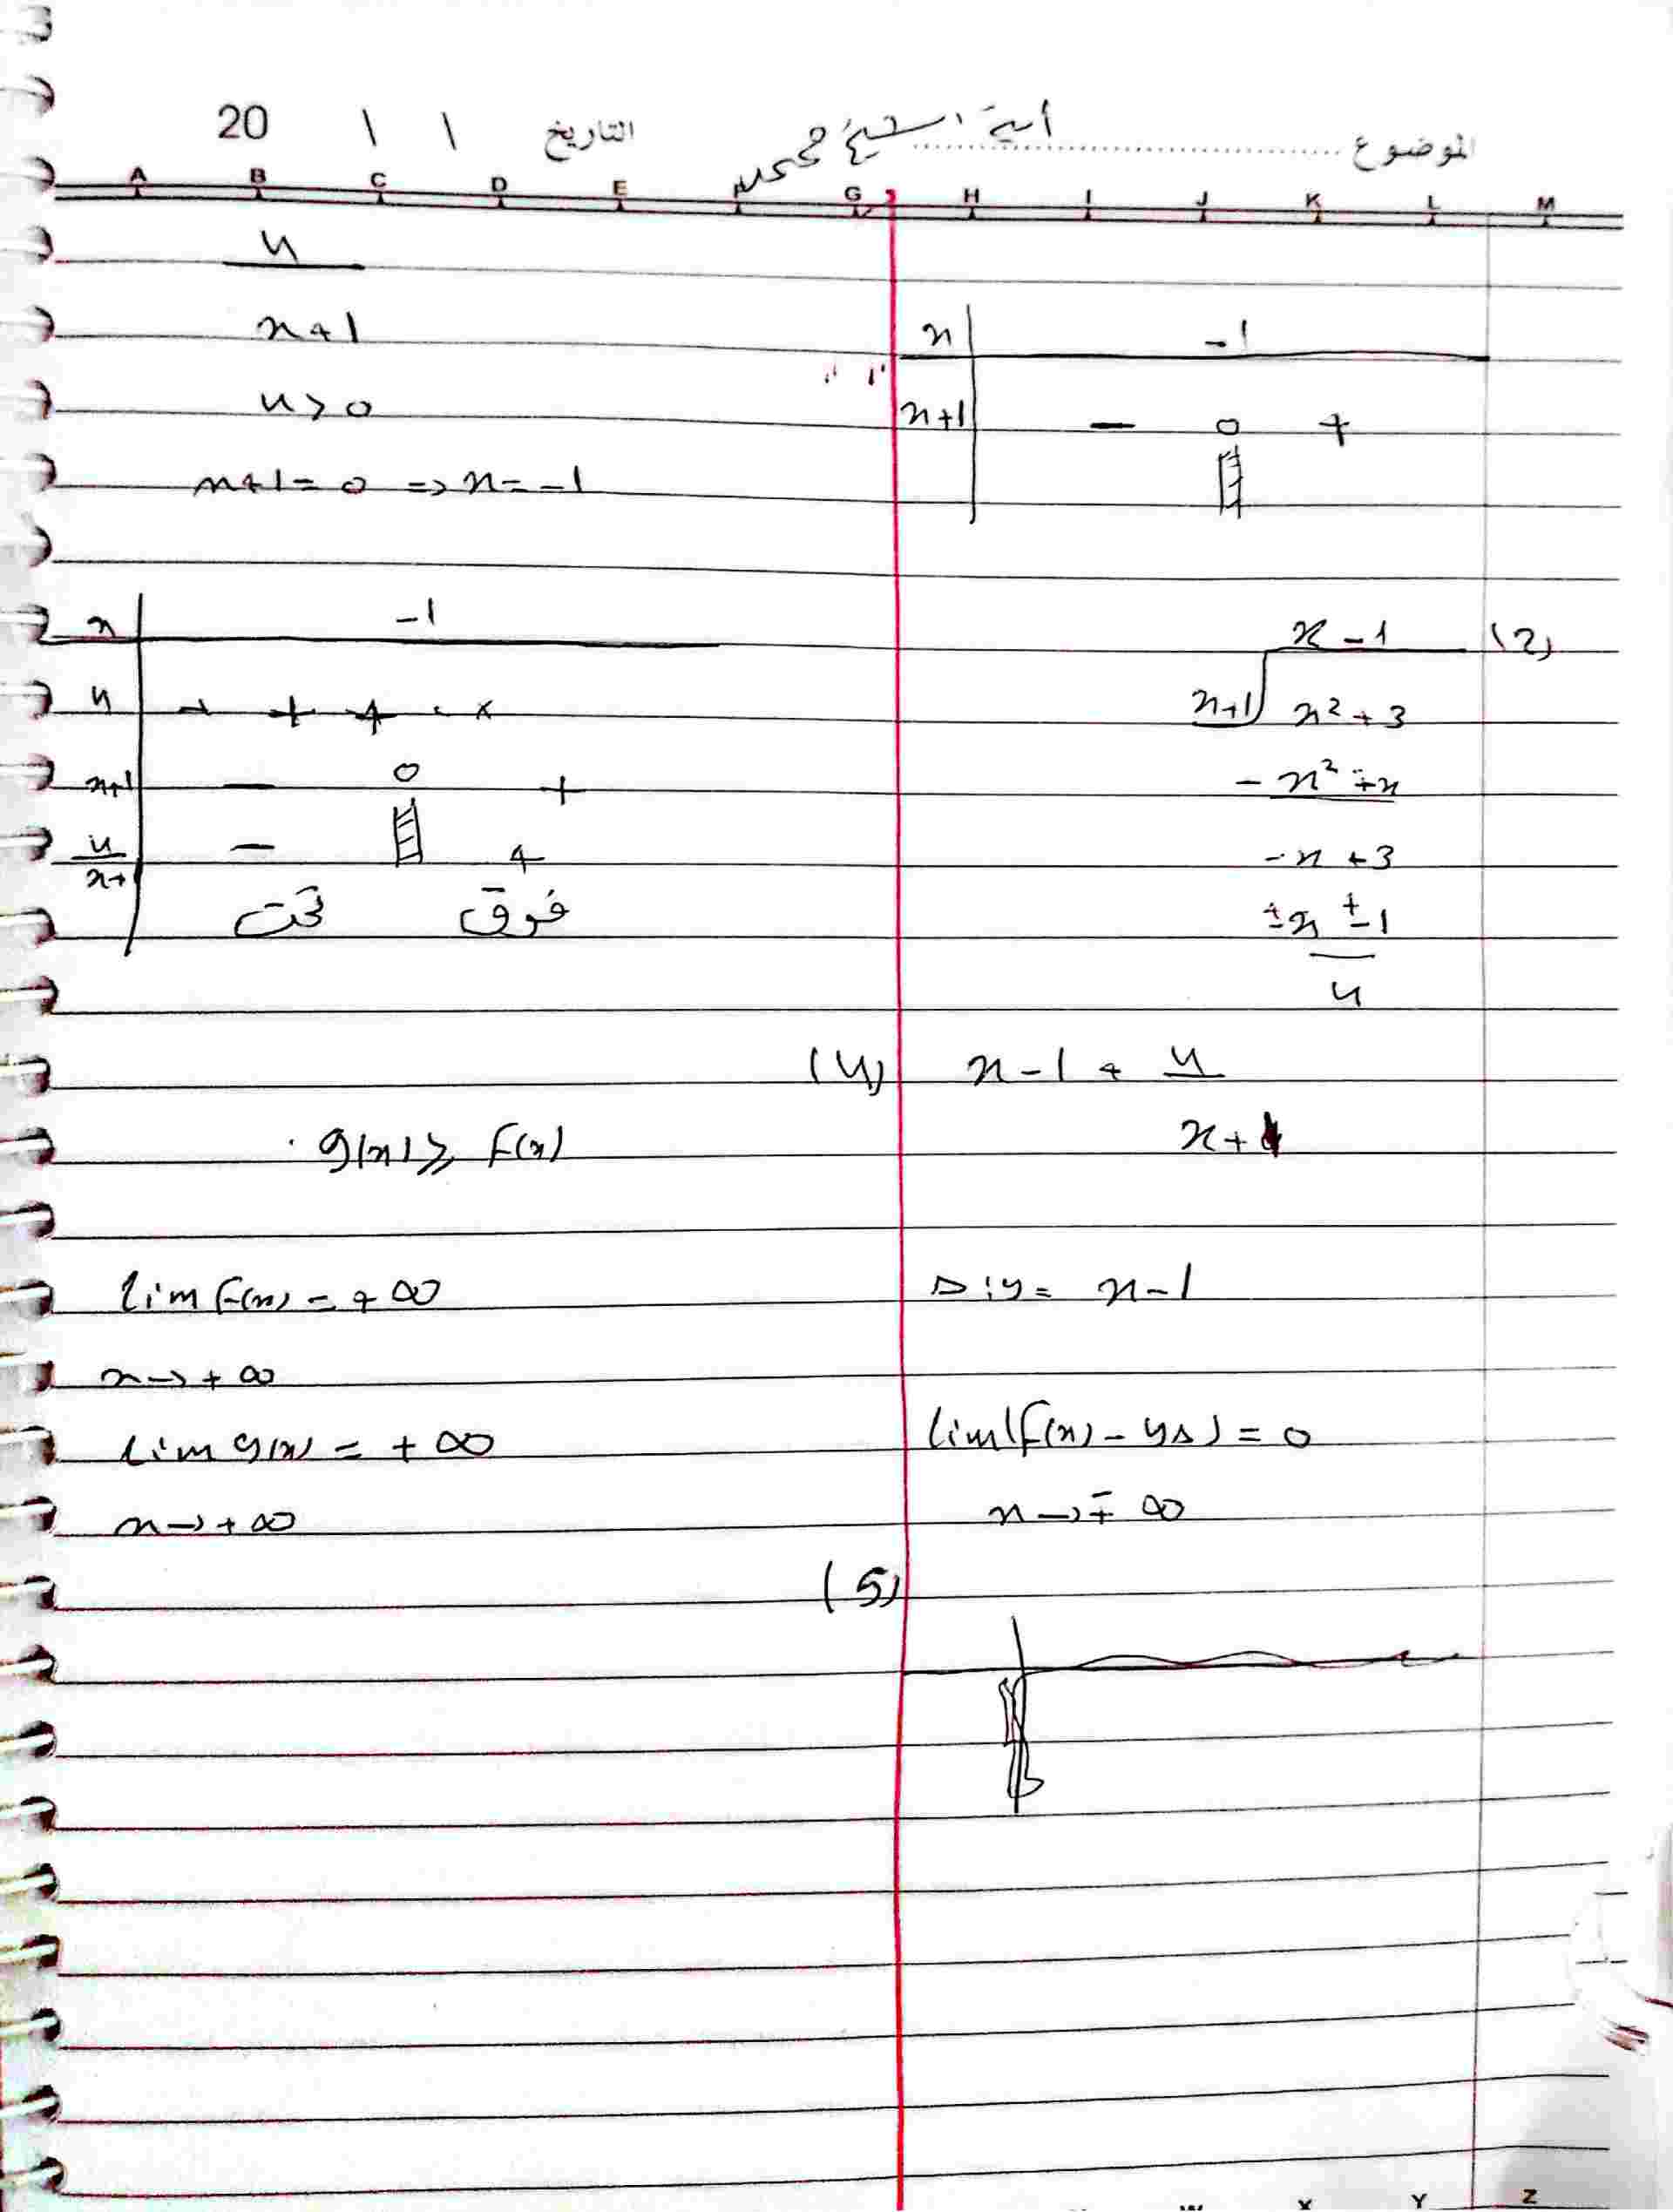 الموضوع ........ التاريخ \ \ 20
A B C D E G H I J K L M
4
x+1
x -1
x+1 - 0 +
4 > 0
x+1 = 0 => x = -1
x -1
4 + + + + +
x+1 - 0 +
4/x+1 - +
تحت فوق
(2)
x - 1
x+1 x² + 3
- x² ∓ x
- x + 3
± x ± 1
4
(4)
x - 1 + 4
x + 1
g(x) ≥ f(x)
lim f(x) = + ∞
x → + ∞
lim g(x) = + ∞
x → + ∞
Δ: y = x - 1
lim (f(x) - yΔ) = 0
x → ∓ ∞
(5)
X Y Z